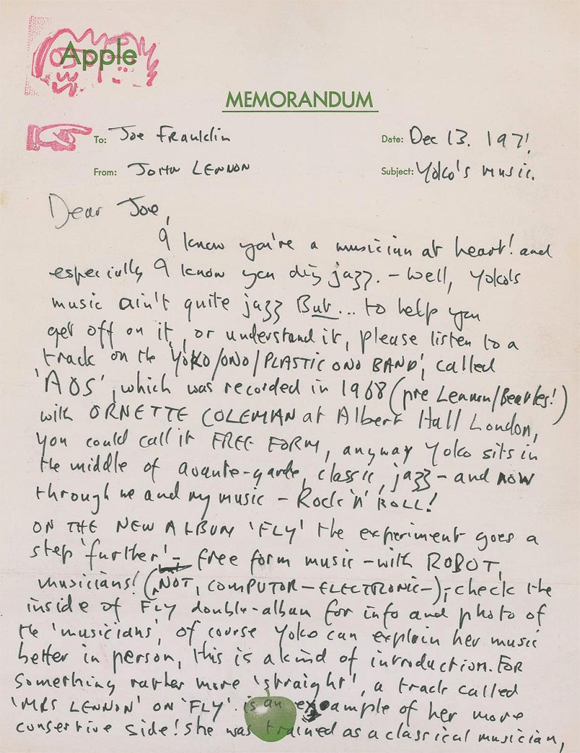 Apple
MEMORANDUM
To: Joe Franklin Date: Dec 13. 1971.
From: JOHN LENNON Subject: Yoko's music.
Dear Joe,
I know you're a musician at heart! and
especially I know you dig jazz. – Well, Yoko's
music ain't quite jazz But... to help you
get off on it, or understand it, please listen to a
track on the 'YOKO/ONO/PLASTIC ONO BAND', called
'AOS', which was recorded in 1968 (pre Lennon/Beatles!)
with ORNETTE COLEMAN at Albert Hall London,
you could call it FREE FORM, anyway Yoko sits in
the middle of avante-garde, classic, jazz – and now
through me and my music – Rock 'N' ROLL!
ON THE NEW ALBUM 'FLY' the experiment goes a
step 'further' – free form music – with ROBOT,
musicians! (NOT, COMPUTOR – ELECTRONIC –); check the
inside of FLY double-album for info and photo of
the 'musicians', of course Yoko can explain her music
better in person, this is a kind of introduction. FOR
something rather more 'straight', a track called
'MRS LENNON' ON 'FLY' is an example of her more
consertive side! She was trained as a classical musician,